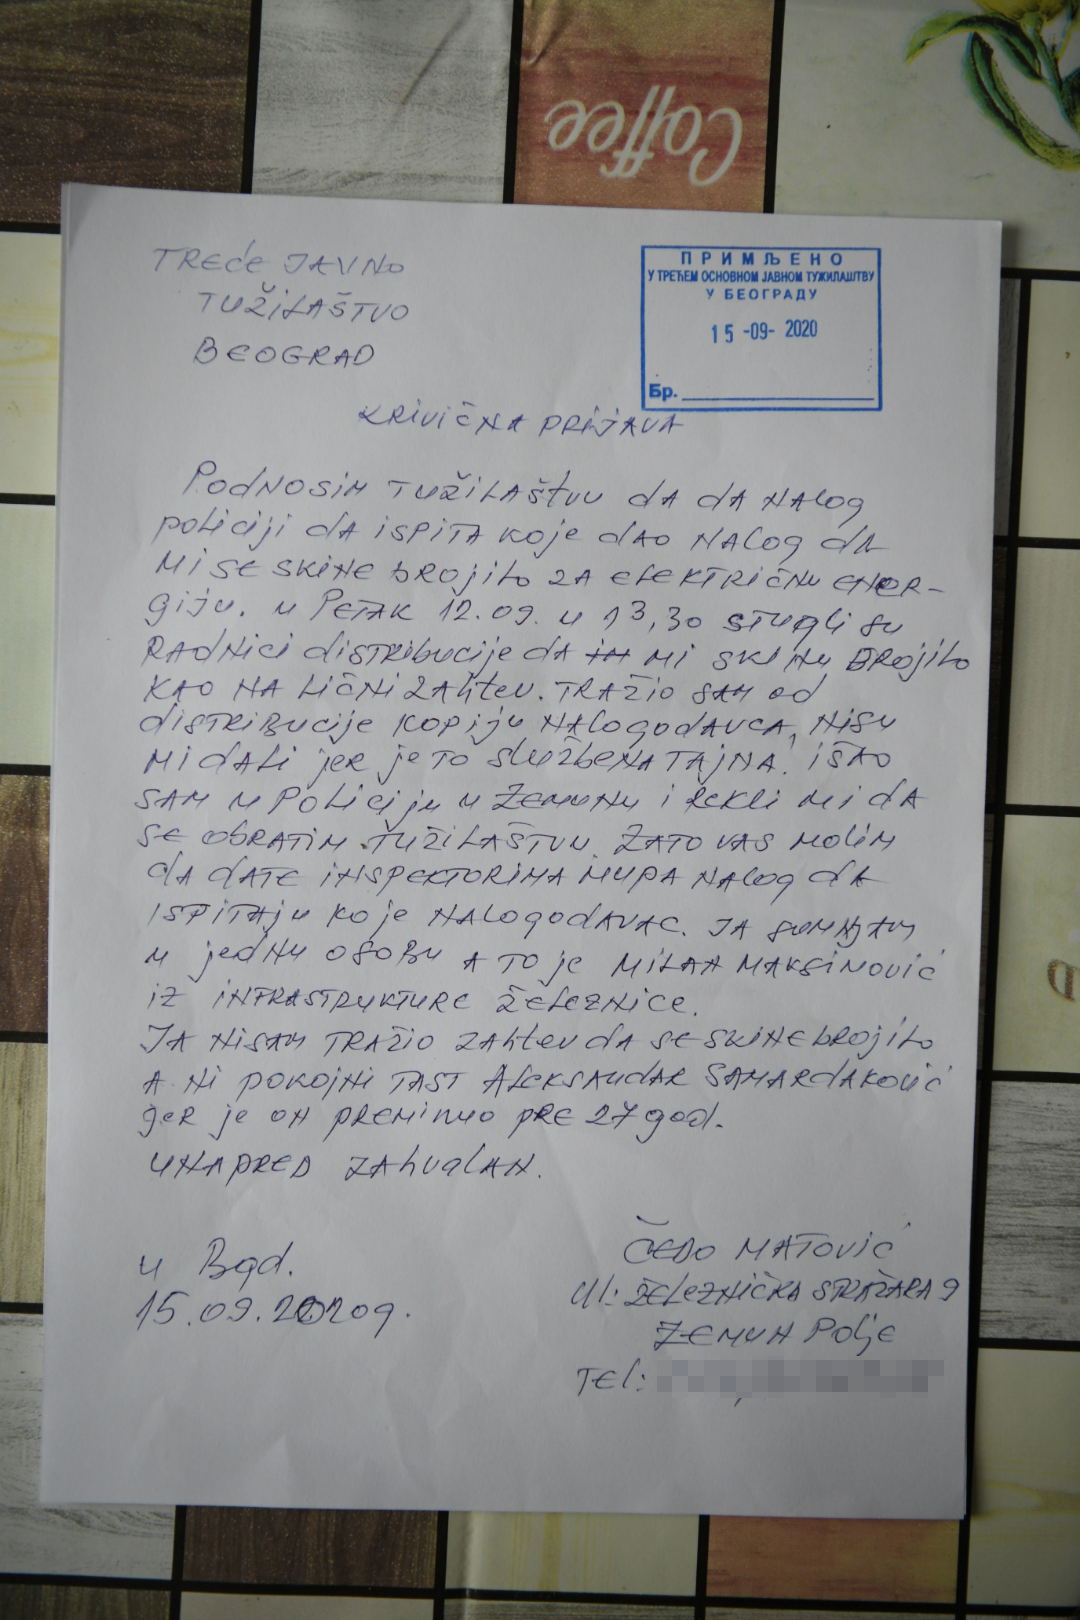 Coffee
TREĆE JAVNO
TUŽILAŠTVO
BEOGRAD
ПРИМЉЕНО
У ТРЕЋЕМ ОСНОВНОМ ЈАВНОМ ТУЖИЛАШТВУ
У БЕОГРАДУ
15 -09- 2020
Бр.
KRIVIČNA PRIJAVA
PODNOSIM TUŽILAŠTVU DA DA NALOG
POLICIJI DA ISPITA KOJE DAO NALOG DA
MI SE SKINE BROJILO ZA ELEKTRIČNU ENER-
GIJU. U PETAK 12.09. U 13,30 STIGLI SU
RADNICI DISTRIBUCIJE DA MI SKINU BROJILO
KAO NA LIČNI ZAHTEV. TRAŽIO SAM OD
DISTRIBUCIJE KOPIJU NALOGODAVCA, NISU
MI DALI JER JE TO SLUŽBENA TAJNA. IŠAO
SAM U POLICIJU U ZEMUNU I REKLI MI DA
SE OBRATIM TUŽILAŠTVU. ZATO VAS MOLIM
DA DATE INSPEKTORIMA MUPA NALOG DA
ISPITAJU KO JE NALOGODAVAC. JA SUMNJAM
U JEDNU OSOBU A TO JE MILAN MAKSIMOVIĆ
IZ INFRASTRUKTURE ŽELEZNICE.
JA NISAM TRAŽIO ZAHTEV DA SE SKINE BROJILO
A NI POKOJNI TAST ALEKSANDAR SAMARDAKOVIĆ
JER JE ON PREMINUO PRE 27 GOD.
UNAPRED ZAHVALAN.
U Bgd.
15.09.2020g.
ČEDO MATOVIĆ
Ul: ŽELEZNIČKA STRAŽARA 9
ZEMUN POLJE
TEL: